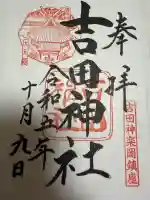 奉拝
吉田神社
令和五年
十月九日
吉田神楽岡鎮座